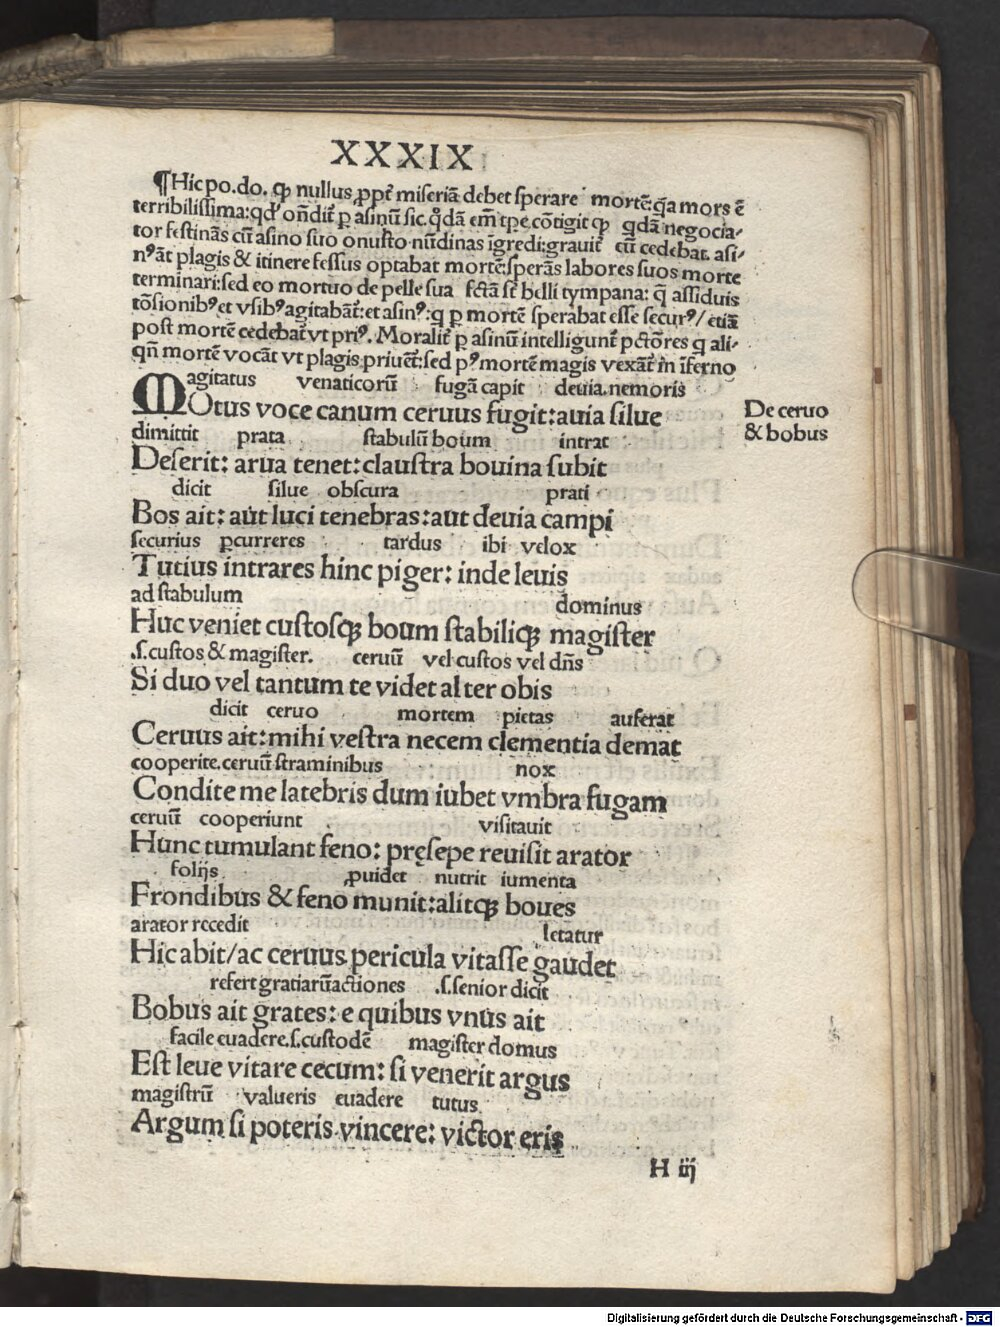 XXXIX
¶Hic po.do. ꝙ nullus ꝓpt᷑ miseriā debet sperare mortē:q̄a mors ē
terribilissima:qd' on̄dit᷑ ꝑ asinū sic.q̊dā em̄ tp̄e cōtigit ꝙ qdā negocia⸗
tor festinās cū asino suo onusto nūdinas īgredi:grauit᷑ eū cedebat. asi⸗
nꝰāt plagis & itinere fessus optabat mortē:sperās labores suos morte
terminari:sed eo mortuo de pelle sua fctā st᷑ belli tympana: q̄ assiduis
tōsionibꝰet vsibꝰagitabāt᷑:et asinꝰ:q ꝑ mortē sperabat esse securꝰ/ etiā
post mortē cedebat᷑ vt priꝰ. Moralit᷑ ꝑ asinū intelligunt᷑ pctōres q ali⸗
qn̄ mortē vocāt vt plagis priuēt᷑:sed pꝰ mortē magis vexāt᷑ in īferno
agitatus venaticorū fugā capit deuia.nemoris
MOtus voce canum ceruus fugit:auia silue
De ceruo
& bobus
dimittit prata stabulū boum intrat
Deserit: arua tenet: claustra bouina subit
dicit silue obscura prati
Bos ait: aut luci tenebras:aut deuia campi
securius ꝑcurreres tardus ibi velox
Tutius intrares hinc piger: inde leuis
ad stabulum dominus
Huc veniet custosqꝫ boum stabiliqꝫ magister
.s.custos & magister. ceruū vel custos vel dn̄s
Si duo vel tantum te videt alter obis
dicit ceruo mortem pietas auferat
Ceruus ait:mihi vestra necem clementia demat
cooperite.ceruū straminibus nox
Condite me latebris dum iubet vmbra fugam
ceruū cooperiunt visitauit
Hunc tumulant feno: pręsepe reuisit arator
folijs ꝓuidet nutrit iumenta
Frondibus & feno munit:alitqꝫ boues
arator recedit letatur
Hic abit/ac ceruus pericula vitasse gaudet
refert gratiarūactiones .s.senior dicit
Bobus ait grates: e quibus vnus ait
facile euadere.s.custodē magister domus
Est leue vitare cecum: si venerit argus
magistrū valueris euadere tutus
Argum si poteris vincere: victor eris
H iij
Digitalisierung gefördert durch die Deutsche Forschungsgemeinschaft - DFG